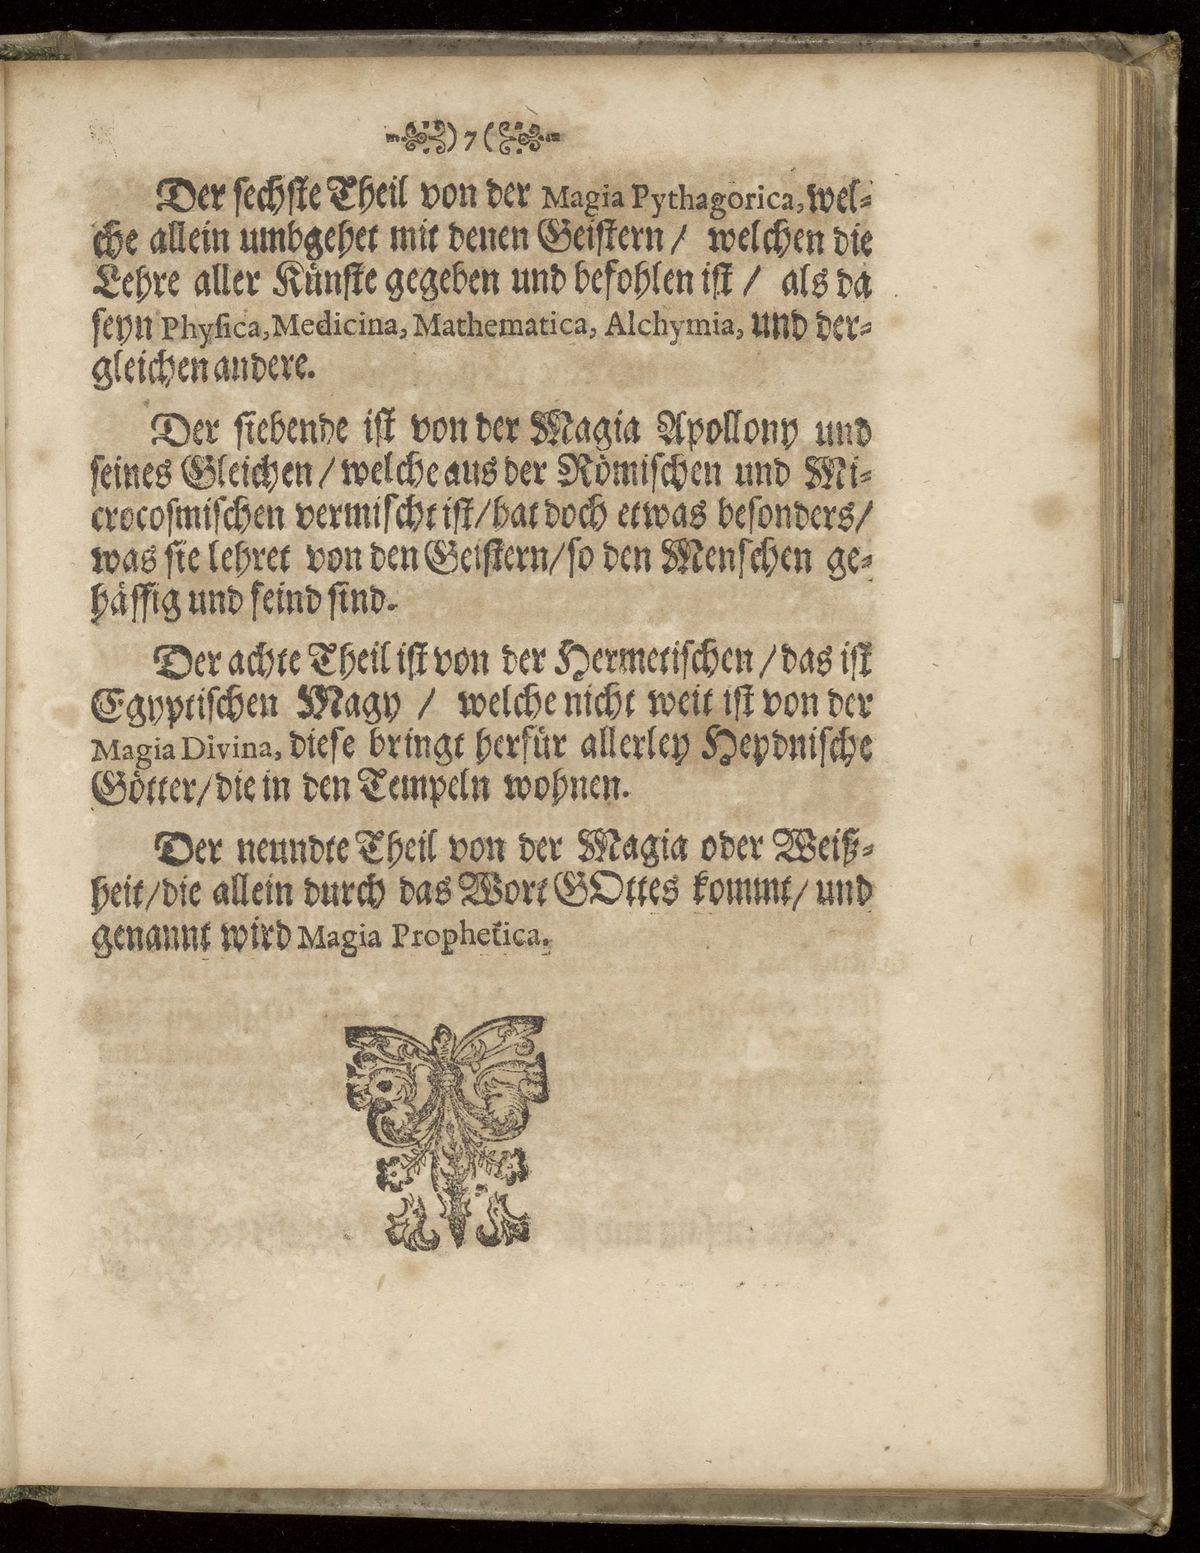 ) 7 (
Der sechste Theil von der Magia Pythagorica, wel-
che allein umbgehet mit denen Geistern / welchen die
Lehre aller Künste gegeben und befohlen ist / als da
seyn Physica, Medicina, Mathematica, Alchymia, und der-
gleichen andere.
Der siebende ist von der Magia Apollony und
seines Gleichen / welche aus der Römischen und Mi-
crocosmischen vermischt ist / hat doch etwas besonders /
was sie lehret von den Geistern / so den Menschen ge-
hässig und feind sind.
Der achte Theil ist von der Hermetischen / das ist
Egyptischen Magy / welche nicht weit ist von der
Magia Divina, diese bringt herfür allerley Heydnische
Götter / die in den Tempeln wohnen.
Der neundte Theil von der Magia oder Weiß-
heit / die allein durch das Wort GOttes kommt / und
genannt wird Magia Prophetica.